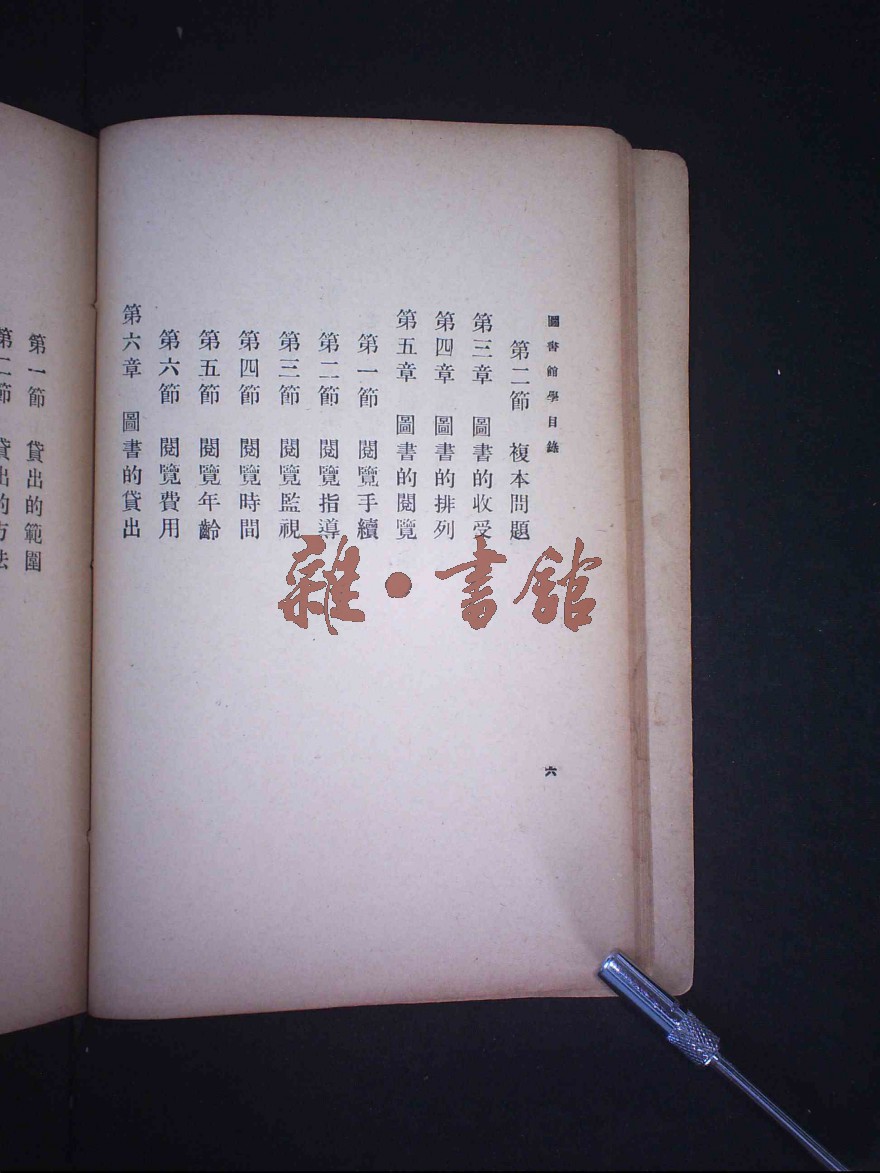 圖書館學目錄
第二節 複本問題
第三章 圖書的收受
第四章 圖書的排列
第五章 圖書的閱覽
第一節 閱覽手續
第二節 閱覽指導
第三節 閱覽監視
第四節 閱覽時間
第五節 閱覽年齡
第六節 閱覽費用
第六章 圖書的貸出
六
第一節 貸出的範圍
第二節 貸出的方法
雜•書館